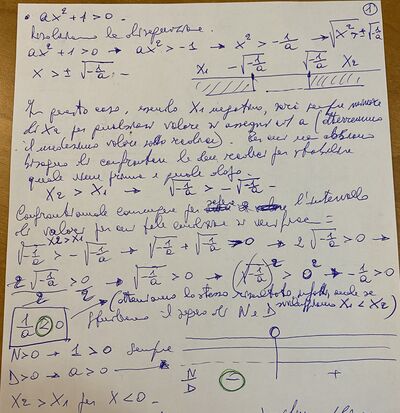 ①
• ax² + 1 > 0 -
Risolviamo la disequazione.
ax² + 1 > 0 → ax² > -1 → x² > -1/a → √x² > ±√-1/a
x > ± √-1/a - x₁ -√-1/a √-1/a x₂
In questo caso, essendo x₁ negativo, sarà sempre minore
di x₂ per qualsiasi valore si assegni ad a (otterremmo
il medesimo valore sotto radice). Per cui non abbiamo
bisogno di confrontare le due radici per stabilire
quale viene prima e quale dopo.
x₂ > x₁ → √-1/a > -√-1/a -
Confrontiamole comunque per l'intervallo
di valori per cui tale condizione si verifica =
x₂ > x₁
√-1/a > -√-1/a → √-1/a + √-1/a > 0 → 2√-1/a > 0 →
2√-1/a / 2 > 0/2 → √-1/a > 0 → (√-1/a)² > 0² → -1/a > 0
→ (otteniamo lo stesso risultato anche se
1/a < 0 Studiamo il segno di N e D x₁ < x₂)
N > 0 → 1 > 0 sempre
D > 0 → a > 0 N D - +
x₂ > x₁ per x < 0 -